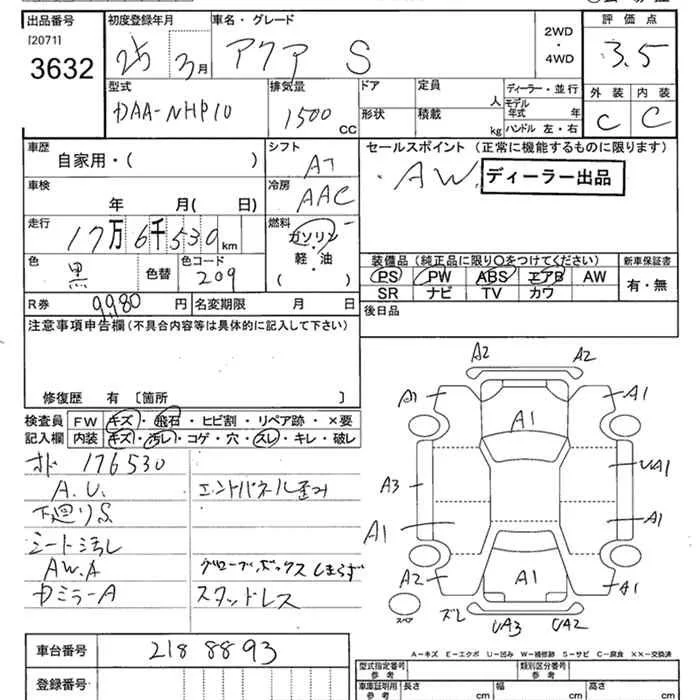 出品番号 初度登録年月 車名・グレード 2WD ・ 4WD 評価点
[2071]
3632 25 3月 アクア S 3.5
型式 排気量 ドア 定員 人 ディーラー・並行 外装 内装
DAA-NHP10 1500 CC 形状 積載 kg モデル年式 年 C C
ハンドル 左・右
車歴 シフト セールスポイント (正常に機能するものに限ります)
自家用・( ) AT
・AW. ディーラー出品
車検 冷房
年 月( 日) AAC
走行 燃料
17万6千530km ガソリン・軽・油
( )
色 色コード 装備品 (純正品に限り○をつけてください) 新車保証書
黒 色替 209 PS PW ABS エアB AW 有・無
SR ナビ TV カワ
R券 9,980 円 名変期限 月 日 後日品
注意事項申告欄 (不具合内容等は具体的に記入して下さい)
修復歴 有 〔箇所 〕
検査員 FW キズ・飛石・ヒビ割・リペア跡・×要
記入欄 内装 キズ・汚レ・コゲ・穴・スレ・キレ・破レ
176530
A.U. エンドパネル歪み
下廻りS
シート汚レ
AW.A グローブボックスしまらず
Dミラー A スタッドレス
A2 A2
A1 A1 A1
A3 UA1
A1 A1
A2 A1 A1
スペア ズレ UA3 UA2
A-キズ E-エクボ U-凹み W-補修跡 S-サビ C-腐食 XX-交換済
車台番号 2188893
登録番号
型式指定番号 参考 類別区分番号 参考
車庫証明用 参考 長さ cm 幅 cm 高さ cm